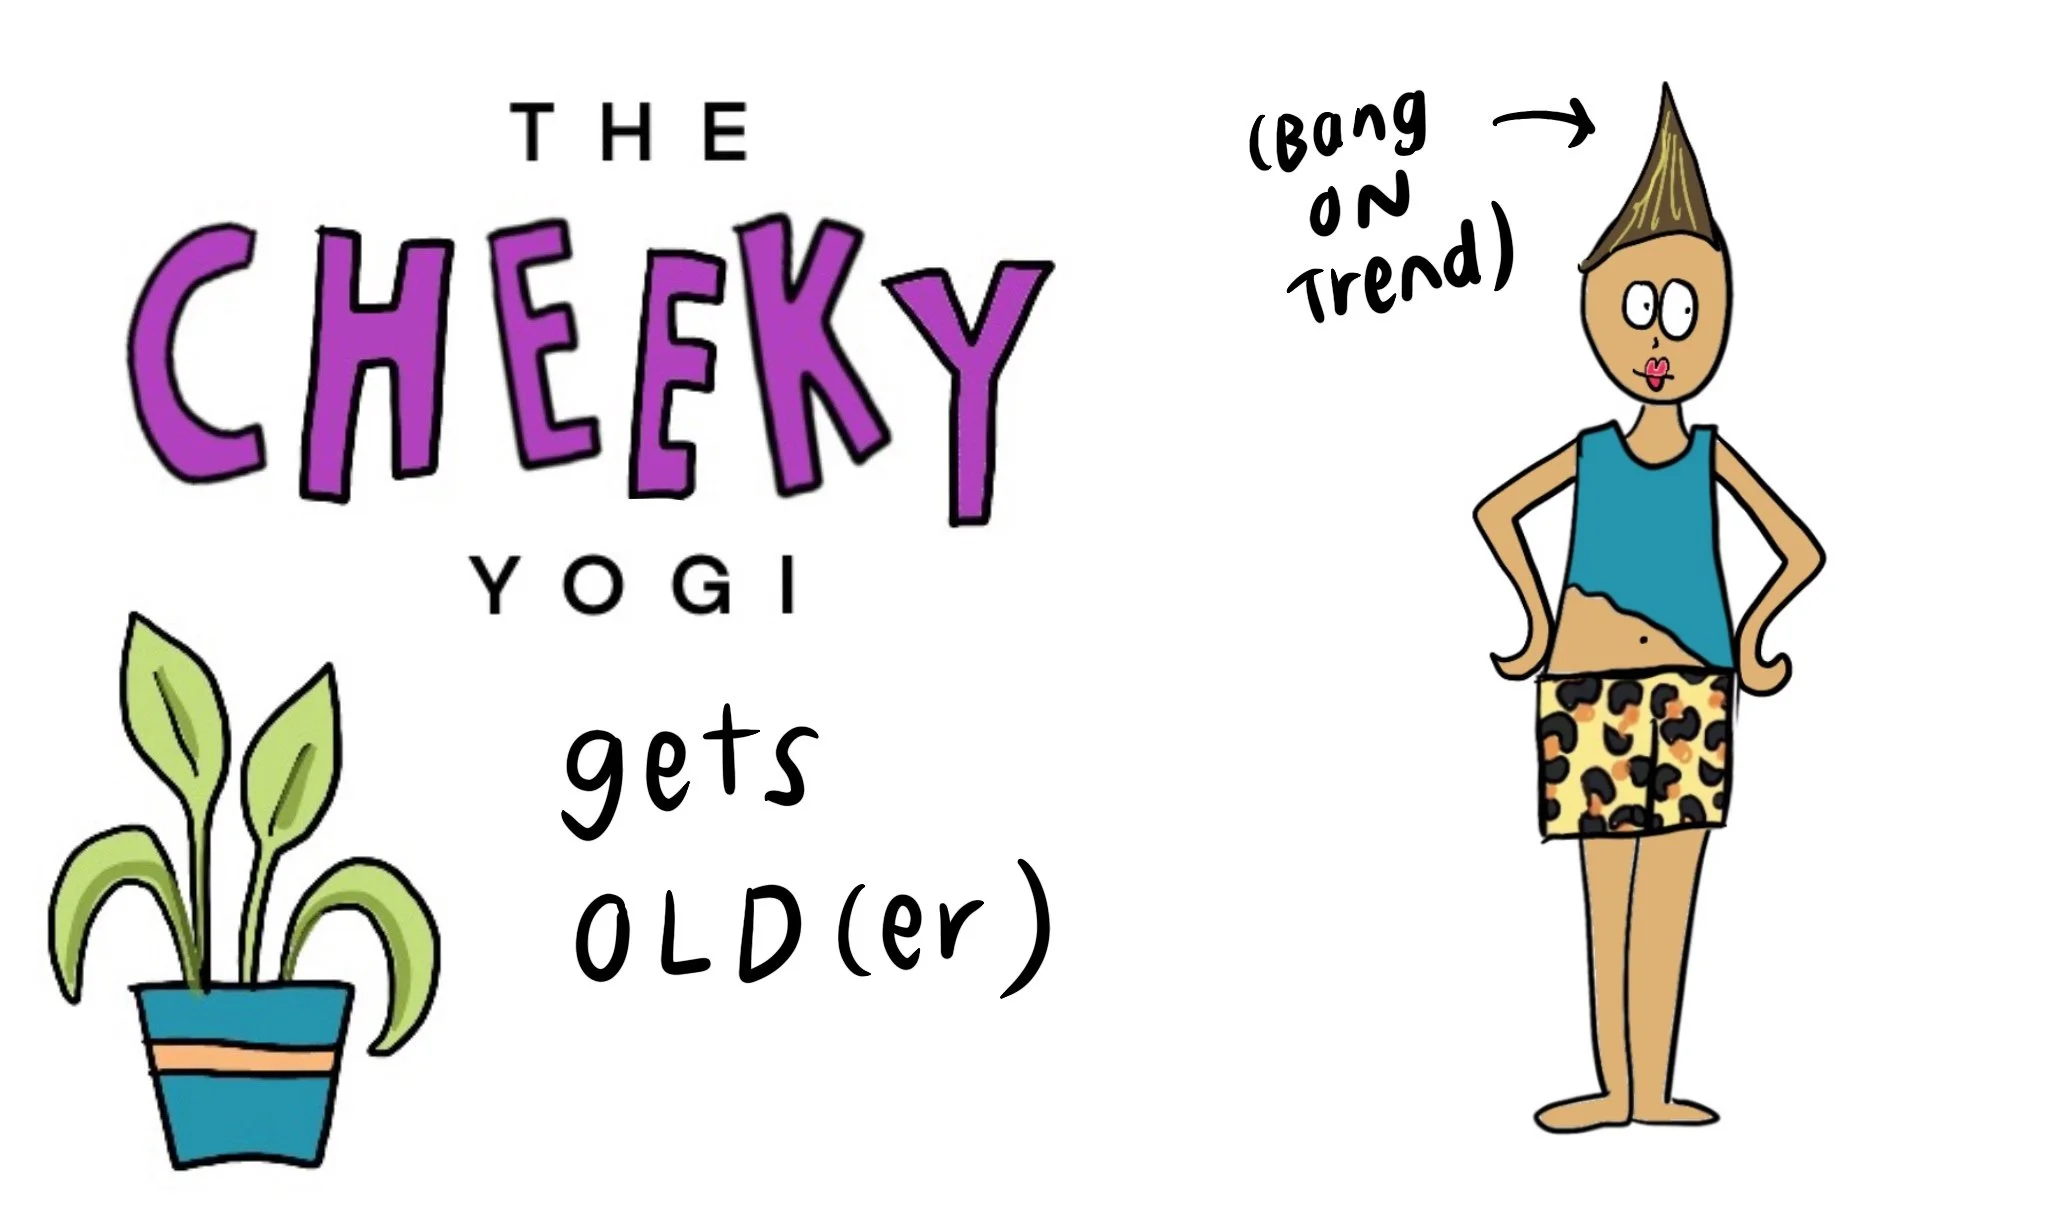 THE
CHEEKY
YOGI
gets
OLD(er)
(Bang
ON
Trend)